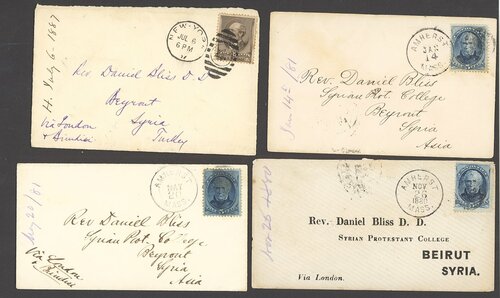 H. July 6-1887
NEW-YORK
JUL 6
6 PM
Rev Daniel Bliss D. D
Beyrout
Syria
Turkey
Via London
& Brindisi
AMHERST
JAN
14
MASS.
Rev. Daniel Bliss
Syrian Prot. College
Beyrout
Syria
Asia
Jan 14th/81
AMHERST
MAY
MASS.
May 20/81
Rev Daniel Bliss
Syrian Prot. College
Beyrout
Syria
Asia
Via London
& Brindisi
AMHERST
NOV
MASS.
Nov 26
Rev. Daniel Bliss D. D.
SYRIAN PROTESTANT COLLEGE
BEIRUT
SYRIA.
Via London.